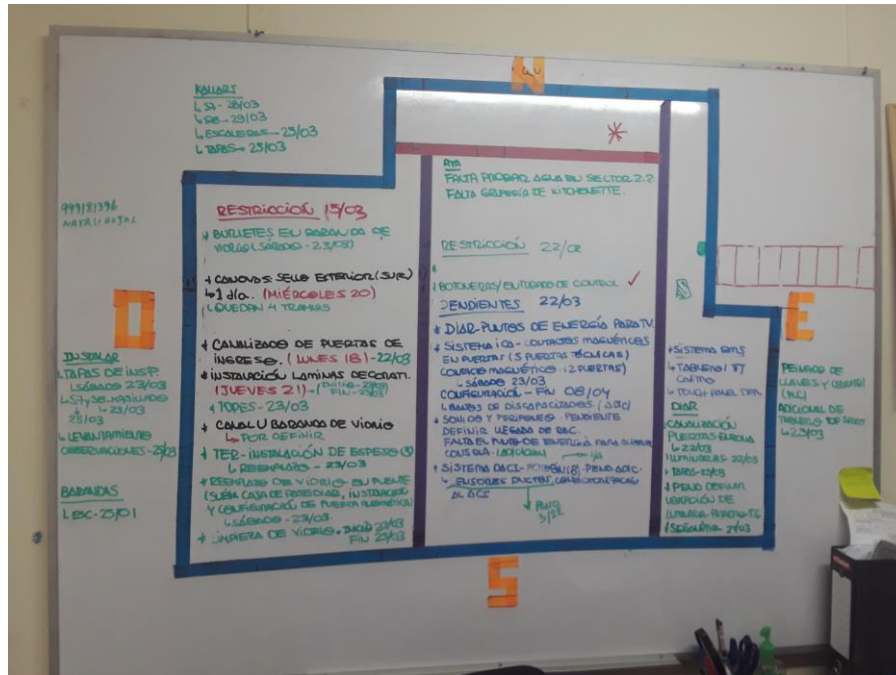 N
KALLARI
↳ S7 - 28/03
↳ S8 - 29/03
↳ ESCALERAS - 25/03
↳ TAPAS - 25/03
999181396
O
INSTALAR
↳ TAPAS DE INSP.
↳ SÁBADO 23/03
25/03
↳ LEVANTAMIENTO
OBSERVACIONES - 25/03
BARANDAS
↳ ESC - 25/01
RESTRICCIÓN 15/03
* BURLETES EN BARANDA DE
VIDRIO (SÁBADO - 23/03)
* CANOVAS: SELLO EXTERIOR (SUR)
↳ 1 día.. (MIÉRCOLES 20)
↳ QUEDAN 4 TRAMOS
* CANALIZADO DE PUERTAS DE
INGRESO. (LUNES 18) - 22/03
* INSTALACIÓN LAMINAS DECORATI.
(JUEVES 21)
FIN - 23/03
* TOPES - 23/03
* CANAL U BARANDA DE VIDRIO
↳ POR DEFINIR
* TER - INSTALACIÓN DE ESPEJO
↳ REEMPLAZO - 23/03
* REEMPLAZO DEL VIDRIO EN PUENTE
(SUBIR CAJA DE PASE, INSTALACIÓN
Y CONFIGURACIÓN DE PUERTA AUTOMÁTICA)
↳ SÁBADO - 23/03
* LIMPIEZA DE VIDRIO. INICIO 22/03
FIN 23/03
FALTA PROBAR AGUA EN SECTOR 2.2.
FALTA GRIFERÍA DE KITCHENETTE.
RESTRICCIÓN 22/
* BOTONERAS/ENTUBADO DE CONTROL ✓
PENDIENTES 22/03
* DIAR - PUNTOS DE ENERGÍA PARA TV.
* SISTEMA - CONTACTOS MAGNÉTICOS
EN PUERTAS (5 PUERTAS TÉCNICAS)
CONTACTO MAGNÉTICO (2 PUERTAS)
↳ SÁBADO 23/03
CONFIGURACIÓN - FIN 08/04
↳ BAÑOS DE DISCAPACITADOS. (ADIC)
* SONIDO Y PERIFONEO - PENDIENTE
DEFINIR LLEGADA DE RAC.
FALTA EL PUNTO DE ENERGÍA PARA
CONSOLA (ADICIONAL)
* SISTEMA DACI - PEND ADIC.
↳ SENSORES DUCTOS,
AL ACI
PEND
3/22
*
E
* SISTEMA BMS
↳ TABLERO
↳ TOUCH PANEL
DIAR
* CANALIZACIÓN
PUERTAS
↳ 22/03
LUMINARIAS 22/03
* TAPAS - 23/03
* PEND DEFINIR
UBICACIÓN DE
* SEÑALÉTICA 21/03
PEINADO DE
LLAVES Y
(PLC)
ADICIONAL DE
TABLERO
↳ 25/03
S